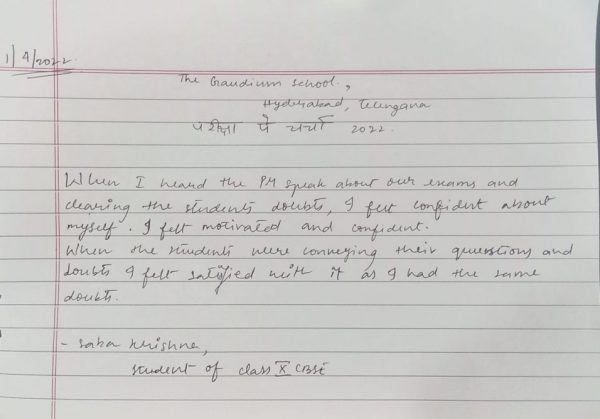 1/4/2022
The Gaudium School,
Hyderabad, Telangana
परीक्षा पे चर्चा 2022.
When I heard the PM speak about our exams and
clearing the students doubts, I felt confident about
myself. I felt motivated and confident.
When the students were conveying their questions and
doubts I felt satisfied with it as I had the same
doubts.
- Krishna,
Student of class X CBSE